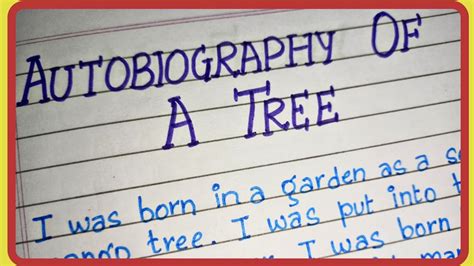 AUTOBIOGRAPHY OF
A TREE
I was born in a garden as a
tree. I was put into
I was born